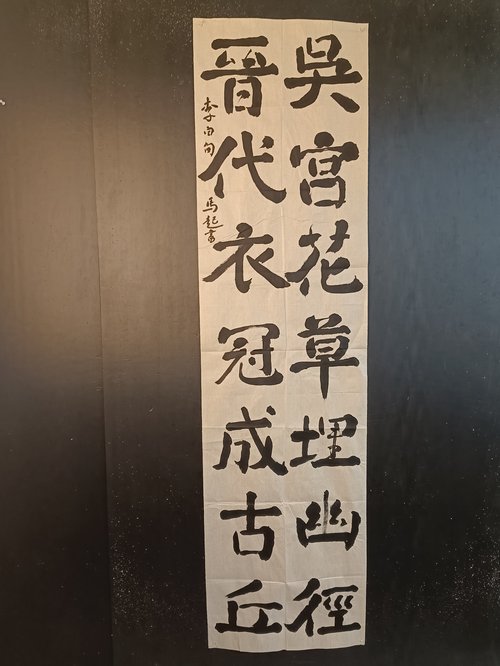 吳宮花草埋幽徑
晉代衣冠成古丘
李白句 馬起書